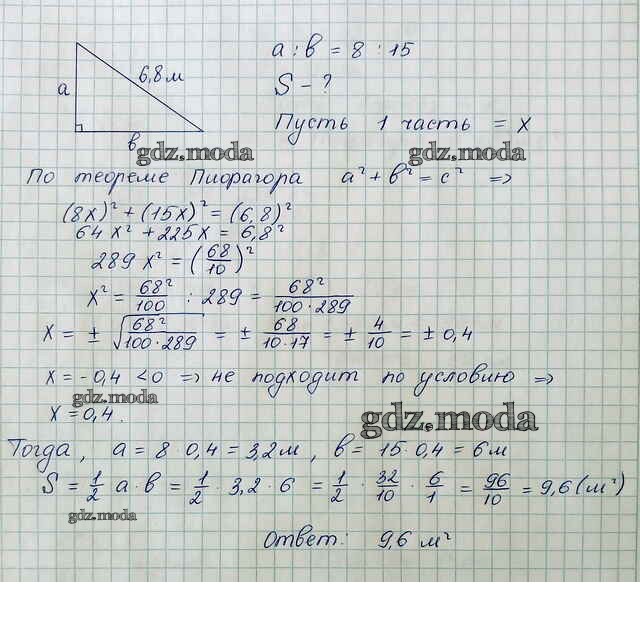 a 6,8 м в
a : в = 8 : 15
S - ?
Пусть 1 часть = x
gdz.moda gdz.moda
По теореме Пифагора a² + в² = c² ⇒
(8x)² + (15x)² = (6,8)²
64x² + 225x = 6,8²
289 x² = (68/10)²
x² = 68²/100 : 289 = 68²/(100·289)
x = ± √(68²/(100·289)) = ± 68/(10·17) = ± 4/10 = ± 0,4
x = -0,4 < 0 ⇒ не подходит по условию ⇒
gdz.moda
x = 0,4.
gdz.moda
Тогда, a = 8 · 0,4 = 3,2 м, в = 15 · 0,4 = 6 м
S = 1/2 a · в = 1/2 · 3,2 · 6 = 1/2 · 32/10 · 6/1 = 96/10 = 9,6 (м²)
gdz.moda
Ответ: 9,6 м²